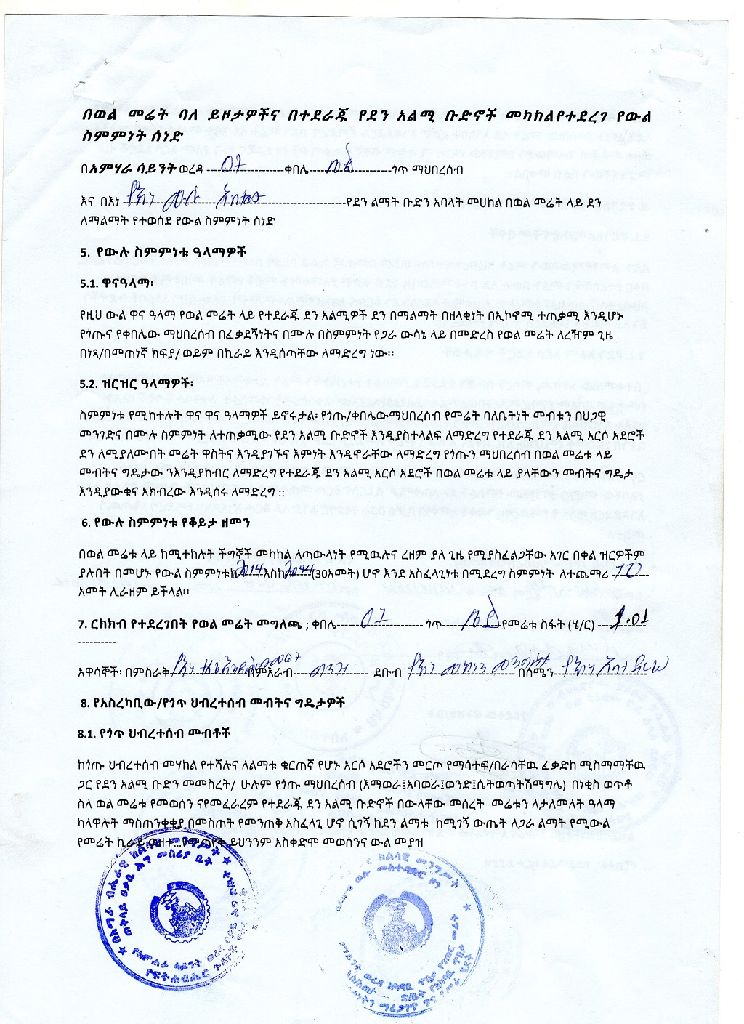 በወል መሬት ባለ ይዞታዎችና በተደራጁ የደን አልሚ ቡድኖች መካከልየተደረገ የውል
ስምምነት ሰነድ
በአምሃራ ሳይንት ወረዳ 07 ቀበሌ ጎጥ ማህበረሰብ
እና በእነ የደን ልማት ቡድን አባላት መሀከል በወል መሬት ላይ ደን
ለማልማት የተወሰደ የውል ስምምነት ሰነድ
5. የውሉ ስምምነቱ ዓላማዎች
5.1. ዋናዓላማ፡
የዚህ ውል ዋና ዓላማ የወል መሬት ላይ የተደራጁ ደን አልሚዎች ደን በማልማት በዘላቂነት በኢኮኖሚ ተጠቃሚ እንዲሆኑ
የጎጡና የቀበሌው ማህበረሰብ በፈቃደኝነትና በሙሉ በስምምነት የጋራ ውሳኔ ላይ በመድረስ የወል መሬት ለረዥም ጊዜ
በነጻ/በመጠነኛ ክፍያ/ ወይም በኪራይ እንዲሰጣቸው ለማድረግ ነው፡፡
5.2. ዝርዝር ዓላማዎች፡
ስምምነቱ የሚከተሉት ዋና ዋና ዓላማዎች ይኖሩታል፡ የጎጡ/ቀበሌውማህበረሰብ የመሬት ባለቤትነት መብቱን በህጋዊ
መንገድና በሙሉ ስምምነት ለተጠቃሚው የደን አልሚ ቡድኖች እንዲያስተላልፍ ለማድረግ የተደራጁ ደን አልሚ አርሶ አደሮች
ደን ለሚያለሙበት መሬት ዋስትና እንዲያገኙና እምነት እንዲኖራቸው ለማድረግ የጎጡን ማህበረሰብ በወል መሬቱ ላይ
መብትና ግዴታው ንእንዲያከብር ለማድረግ የተደራጁ ደን አልሚ አርሶ አደሮች በወል መሬቱ ላይ ያላቸውን መብትና ግዴታ
እንዲያውቁና አክብረው እንዲሰሩ ለማድረግ ፡፡
6. የውሉ ስምምነቱ የቆይታ ዘመን
በወል መሬቱ ላይ ከሚተከሉት ችግኞች መካከል ለጣውላነት የሚዉሉና ረዘም ያለ ጊዜ የሚያስፈልጋቸው አገር በቀል ዝርዎችም
ያሉበት በመሆኑ የውል ስምምነቱከ2014እስከ2044(30አመት) ሆኖ እንደ አስፈላጊነቱ በሚደረግ ስምምነት ለተጨማሪ
አመት ሊራዘም ይችላል፡፡
7. ርክክብ የተደረገበት የወል መሬት መግለጫ ; ቀበሌ 07 ጎጥ የመሬቱ ስፋት (ሄ/ር)
አዋሳኞች፡ በምስራት በምእራብ መንገድ ደቡብ በሰሜን
8. የአስረካቢው/የጎጥ ህብረተሰብ መብትና ግዴታዎች
8.1. የጎጥ ህብረተሰብ መብቶች
ከጎጡ ህብረተሰብ መሃከል የተሻሉና ለልማቱ ቁርጠኛ የሆኑ አርሶ አደሮችን መርጦ የማሳተፍ/በራሳቸዉ ፈቃድከ ሚስማማቸዉ
ጋር የደን አልሚ ቡድን መመስረት/ ሁሉም የጎጡ ማህበረሰብ (እማወራ፤አባወራ፤ወንድ፤ሴትወጣትሽማግሌ) በነቂስ ወጥቶ
ስላ ወል መሬቱ የመወሰን ናየመፈራረም የተደራጁ ደን አልሚ ቡድኖች በውላቸው መሰረት መሬቱን ላታለመለት ዓላማ
ካላዋሉት ማስጠንቀቂያ በመስጠት የመንጠቅ አስፈላጊ ሆኖ ሲገኝ ከደን ልማቱ ከሚገኝ ውጤት ለጋራ ልማት የሚውል
የመሬት ኪራይ ይህንንም አስቀድሞ መወሰንና ውል መያዝ